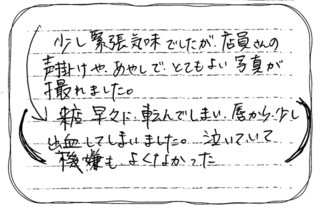 少し緊張気味でしたが、店員さんの
声掛けや、あやしで、とてもよい写真が
撮れました。
来店早々に、転んでしまい、唇から、少し
出血してしまいました。泣いていて
機嫌もよくなかった